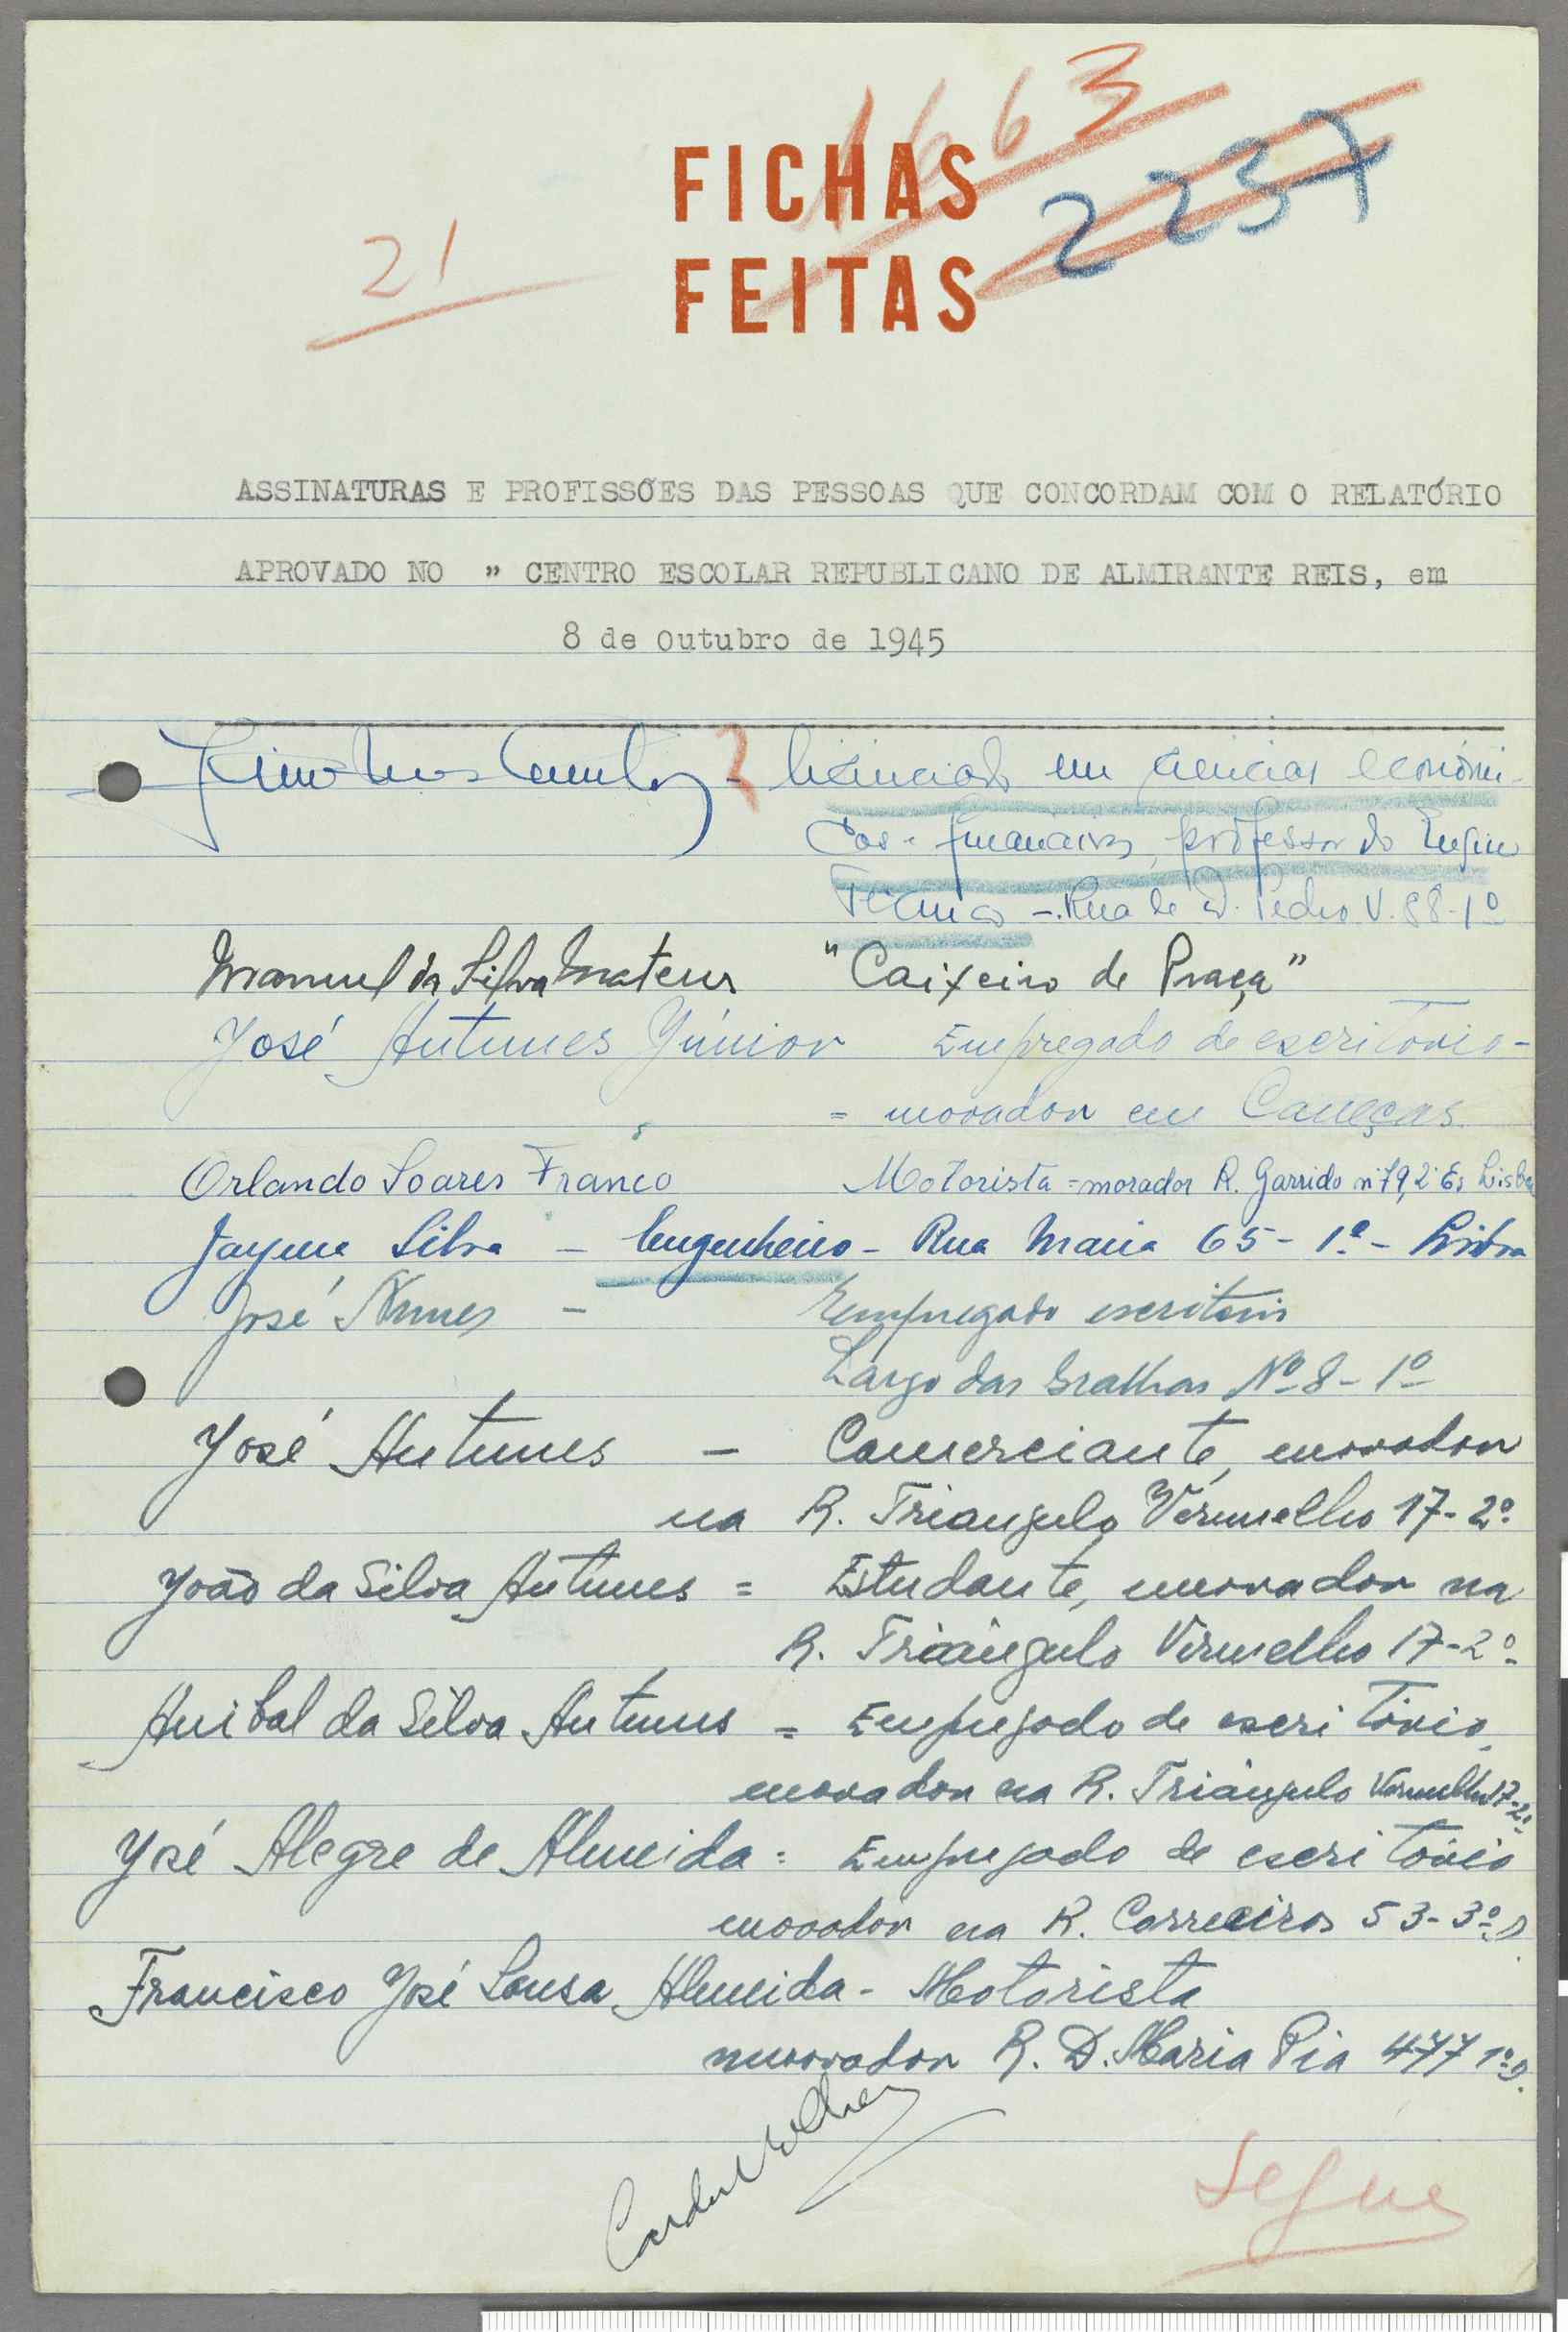 1663
FICHAS
FEITAS
2237
21
ASSINATURAS E PROFISSÕES DAS PESSOAS QUE CONCORDAM COM O RELATÓRIO
APROVADO NO " CENTRO ESCOLAR REPUBLICANO DE ALMIRANTE REIS, em
8 de Outubro de 1945
? - licenciado em ciencias económi-
cas e financeiras, professor do Ensino
Técnico - Rua de D. Pedro V. 88-1º
Manuel da Silva Mateus "Caixeiro de Praça"
José Antunes Júnior Empregado de escritorio-
= morador em Caneças
Orlando Soares Franco Motorista = morador R. Garrido nº 79, 2º Es Lisboa
Jayme Silva - Engenheiro - Rua Maria 65 - 1º - Lisboa
José Nunes - Empregado escritorio
Largo das Gralhas Nº 8 - 1º
José Antunes - Comerciante, morador
na R. Triangulo Vermelho 17-2º
João da Silva Antunes = Estudante, morador na
R. Triângulo Vermelho 17-2º
Anibal da Silva Antunes = Empregado de escritório,
morador na R. Triângulo Vermelho 17-2º
José Alegre de Almeida = Empregado de escritório
morador na R. Correeiros 53-3º
Francisco José Sousa Almeida - Motorista
morador R. D. Maria Pia 477 1º
Segue